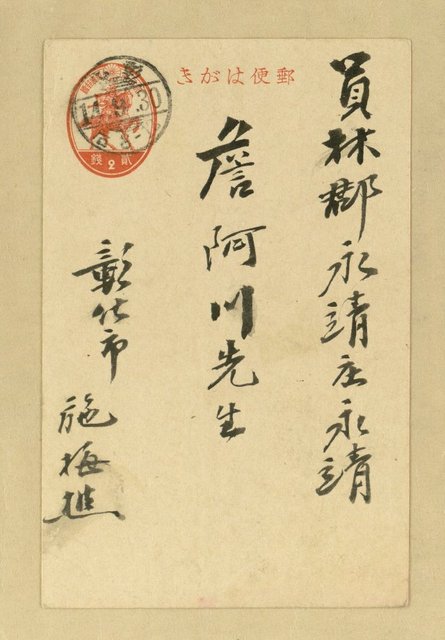 郵便はがき
員林郡永靖庄永靖
詹阿川先生
彰化市
施梅樵
貳
2
錢